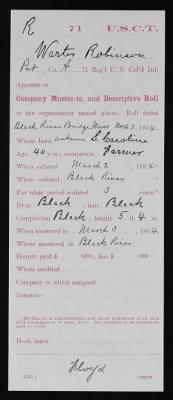 R 71 U.S.C.T.
Robinson
Pvt., Co. A, 71 Reg't U. S. Col'd Inf.
Appears on
Company Muster-in and Descriptive Roll
of the organization named above. Roll dated
Black River Bridge Miss Mch 3, 1864.
Where born S. Carolina
Age 40 y'rs; occupation Farmer
When enlisted March 2, 1864.
Where enlisted Black River
For what period enlisted 3 years.
Eyes Black; hair Black
Complexion Black; height 5 ft. 4 in.
When mustered in March 3, 1864.
Where mustered in Black River
Bounty paid $ 100; due $ 100
Where credited
Company to which assigned
Remarks:
Book mark:
Lloyd
Copyist.